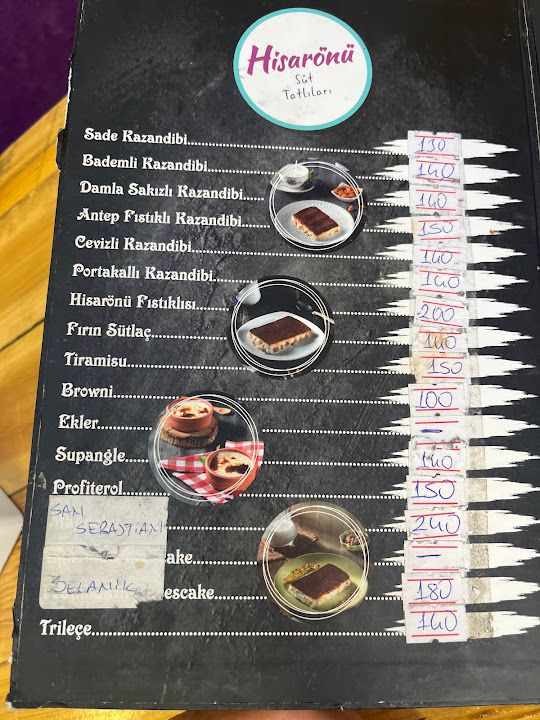 Hisarönü
Süt
Tatlıları
Sade Kazandibi 130
Bademli Kazandibi 140
Damla Sakızlı Kazandibi 140
Antep Fıstıklı Kazandibi 150
Cevizli Kazandibi 140
Portakallı Kazandibi 140
Hisarönü Fıstıklısı 200
Fırın Sütlaç 140
Tiramisu 150
Browni 100
Ekler –
Supangle 140
Profiterol 150
SAN SEBASTIAN 240
ake –
SELANİK escake 180
Trileçe 140